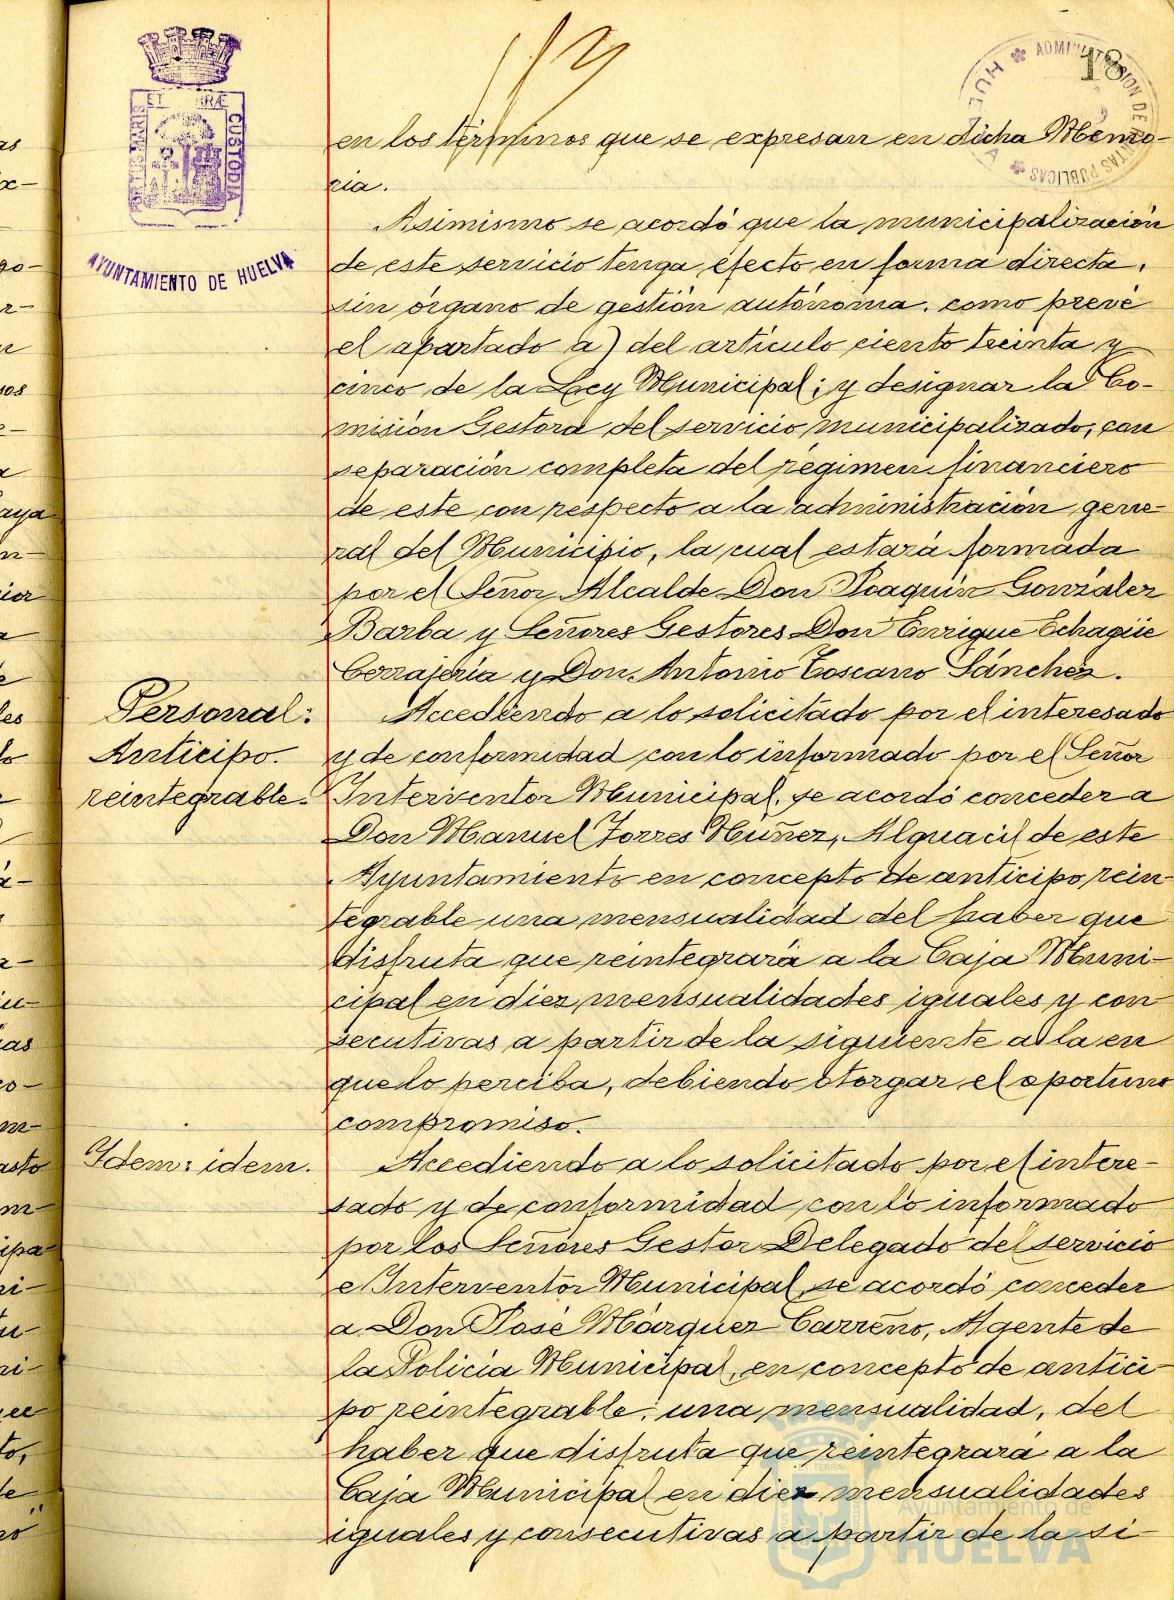 18
ADMINISTRACION DE RENTAS PUBLICAS
HUELVA
PORTUS MARIS ET TERRÆ CUSTODIA
AYUNTAMIENTO DE HUELVA
en los términos que se expresan en dicha Memo-
ria.
Asimismo se acordó que la municipalización
de este servicio tenga efecto en forma directa,
sin órgano de gestión autónoma, como prevé
el apartado a) del artículo ciento treinta y
cinco de la Ley Municipal; y designar la Co-
misión Gestora del servicio municipalizado, con
separación completa del régimen financiero
de este con respecto a la administración gene-
ral del Municipio, la cual estará formada
por el Señor Alcalde Don Joaquín González
Barba y Señores Gestores Don Enrique Echagüe
Cerrajería y Don Antonio Toscano Sánchez.
Personal:
Anticipo
reintegrable.
Accediendo a lo solicitado por el interesado
y de conformidad con lo informado por el Señor
Interventor Municipal, se acordó conceder a
Don Manuel Torres Núñez, Alguacil de este
Ayuntamiento en concepto de anticipo rein-
tegrable una mensualidad del haber que
disfruta que reintegrará a la Caja Muni-
cipal en diez mensualidades iguales y con-
secutivas a partir de la siguiente a la en
que lo perciba, debiendo otorgar el oportuno
compromiso.
Idem: idem.
Accediendo a lo solicitado por el intere-
sado y de conformidad con lo informado
por los Señores Gestor Delegado del servicio
e Interventor Municipal, se acordó conceder
a Don José Márquez Carreño, Agente de
la Policía Municipal, en concepto de antici-
po reintegrable, una mensualidad, del
haber que disfruta que reintegrará a la
Caja Municipal en diez mensualidades
iguales y consecutivas a partir de la si-
Ayuntamiento de
HUELVA